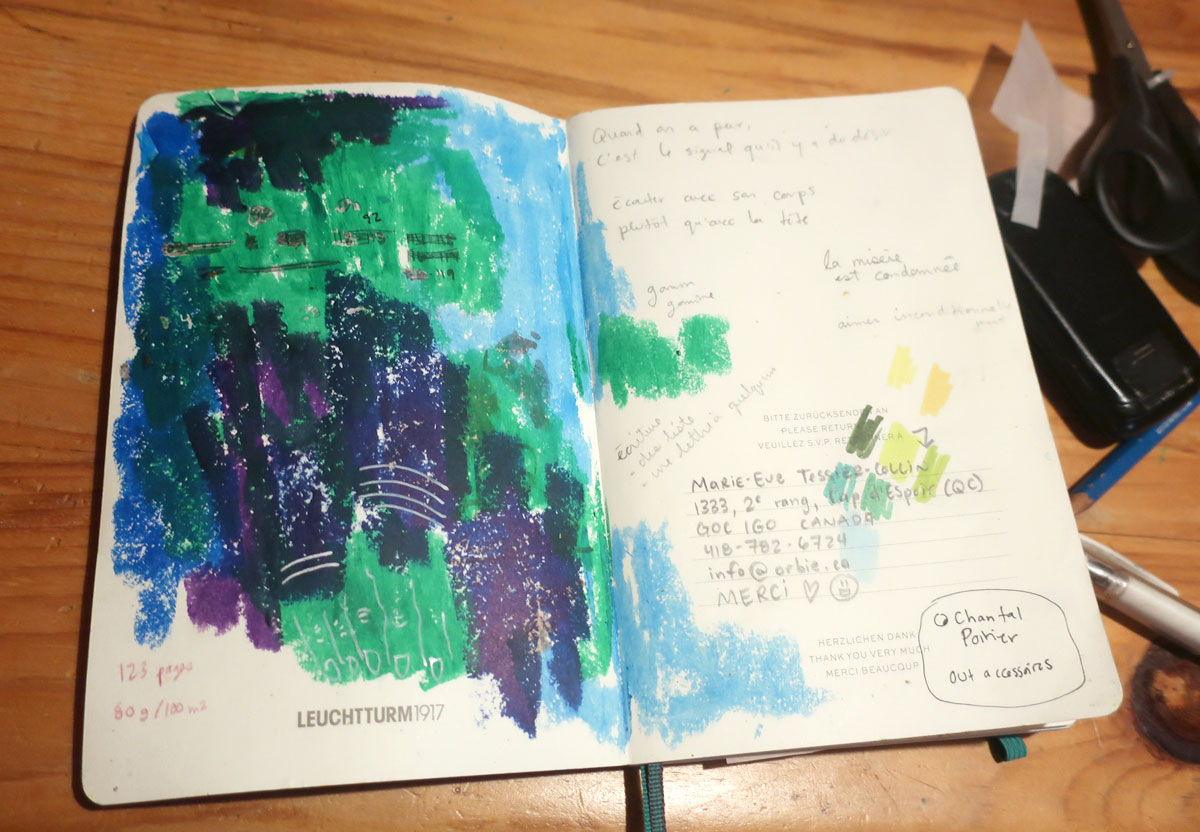 123 pages
80g/100m2
LEUCHTTURM1917
Quand on a peur,
c'est le signal qu'il y a du désir
Écouter avec son corps
plutôt qu'avec la tête
la misère
est condamnée
gamme
aimer inconditionnellement
écriture
- des liste
- une lettre à quelqu'un
BITTE ZURÜCKSENDEN AN
PLEASE RETURN
VEUILLEZ S.V.P. RETOURNER À
MARIE-EVE TESSIER-COLLIN
1333, 2e rang, Cap d'Espoir (QC)
G0C 1G0 CANADA
418-782-6724
info@orbie.ca
MERCI ♡
HERZLICHEN DANK
THANK YOU VERY MUCH
MERCI BEAUCOUP
Chantal
Poirier
out accessoires